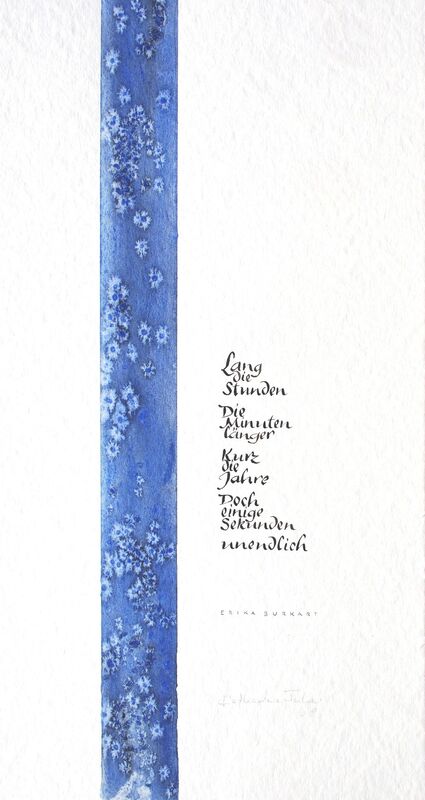 Lang
die
Stunden
Die
Minuten
länger
Kurz
die
Jahre
Doch
einige
Sekunden
unendlich
ERIKA BURKART